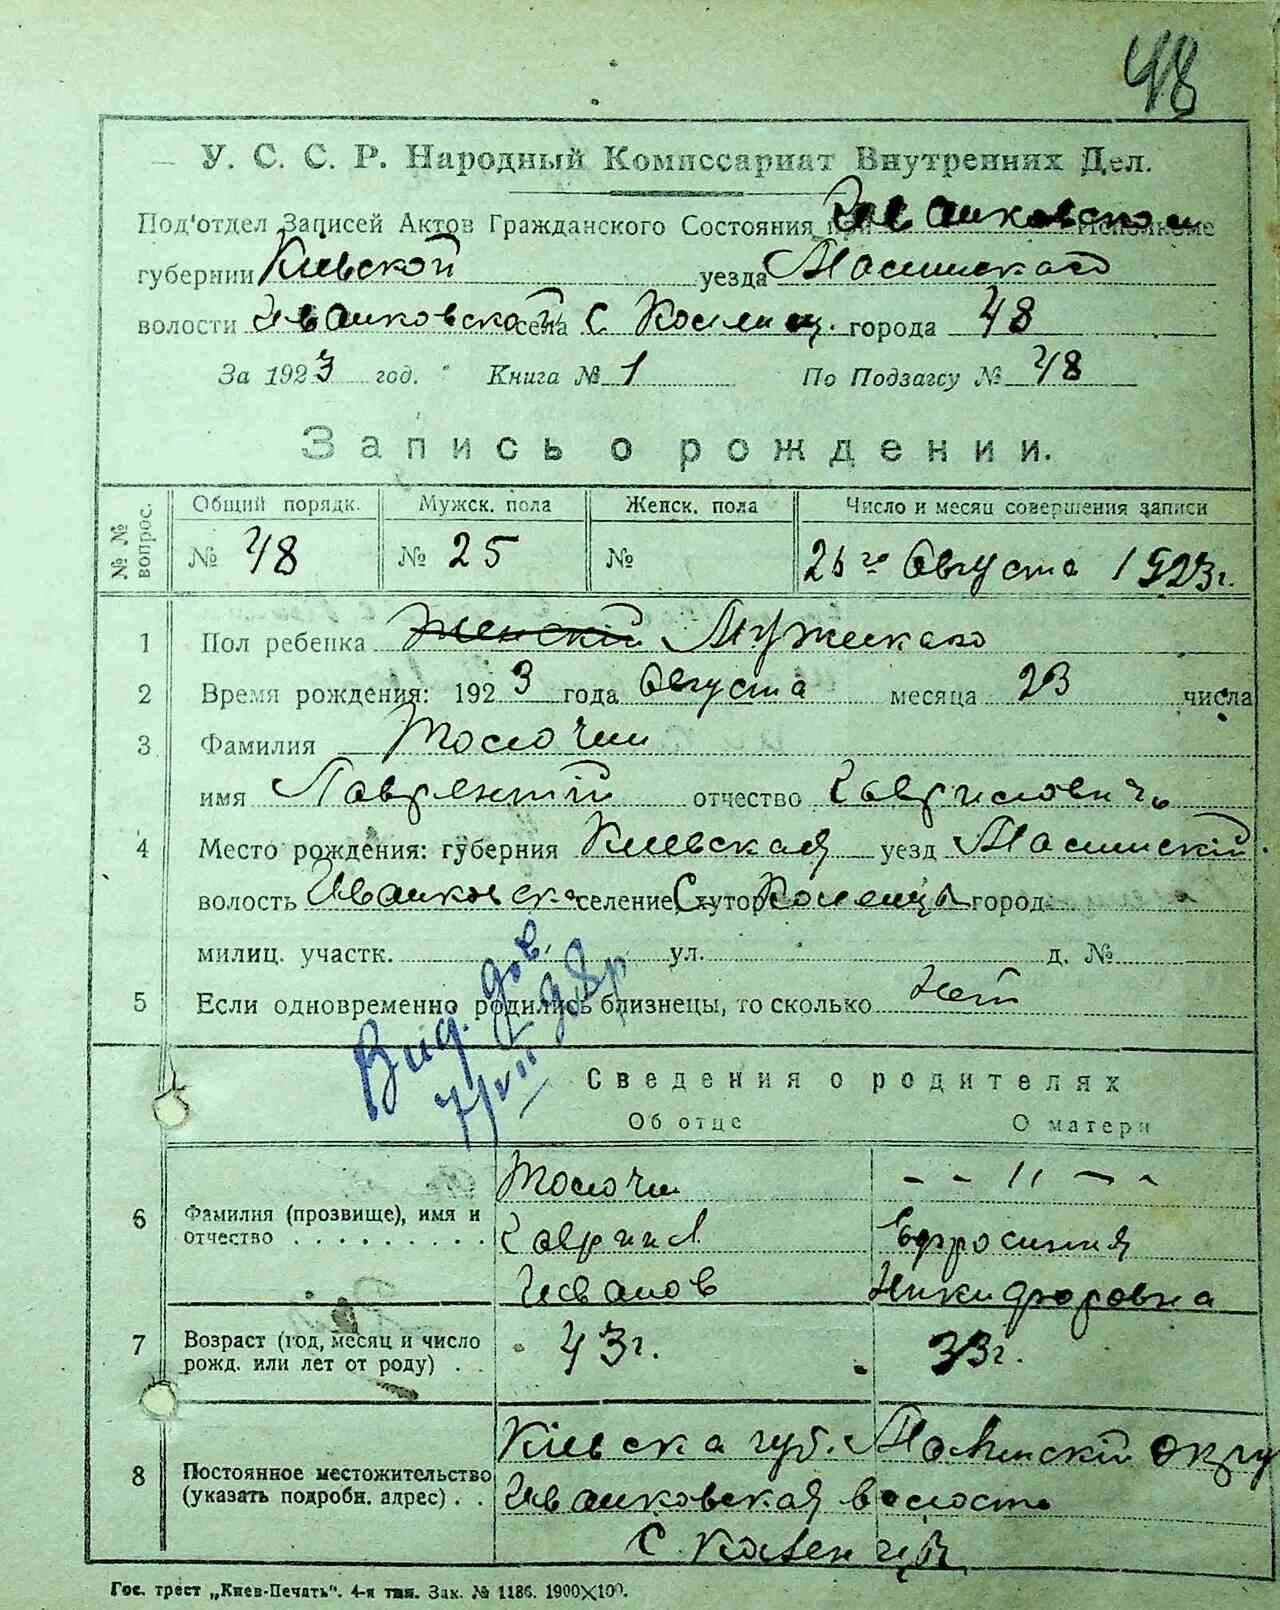 48
У. С. С. Р. Народный Комиссариат Внутренних Дел.
Под'отдел Записей Актов Гражданского Состояния при Иванковском Исполкоме
губернии Киевской уезда Малинскаго
волости Иванковской села С города 48
За 1923 год. Книга № 1 По Подзагсу № 48
Запись о рождении.
№ № вопрос.
Общий порядк. Мужск. пола Женск. пола Число и месяц совершения записи
№ 48 № 25 № Августа 1923г.
1 Пол ребенка Женскій Мужскаго
2 Время рождения: 1923 года Августа месяца 23 числа
3 Фамилия Толочин
имя Лаврентій отчество Гаврилович
4 Место рождения: губерния Киевская уезд Малинскій
волость Иванковска селение, хутор С. город
милиц. участк. ул. д. №
5 Если одновременно родились близнецы, то сколько Нет
Вид. дов.
Сведения о родителях
Об отце О матери
Толочин - - 11 - -
6 Фамилия (прозвище), имя и отчество . . . . . . . . .
Гаврил Ефросиния
Иванов Никифоровна
7 Возраст (год, месяц и число рожд. или лет от роду) . .
43г. 33г.
Кіевска губ. Малинскій округ
8 Постоянное местожительство (указать подробн. адрес) . .
Иванковская волость
С.
Гос. трест „Киев-Печать". 4-я тип. Зак. № 1186. 1900×100.